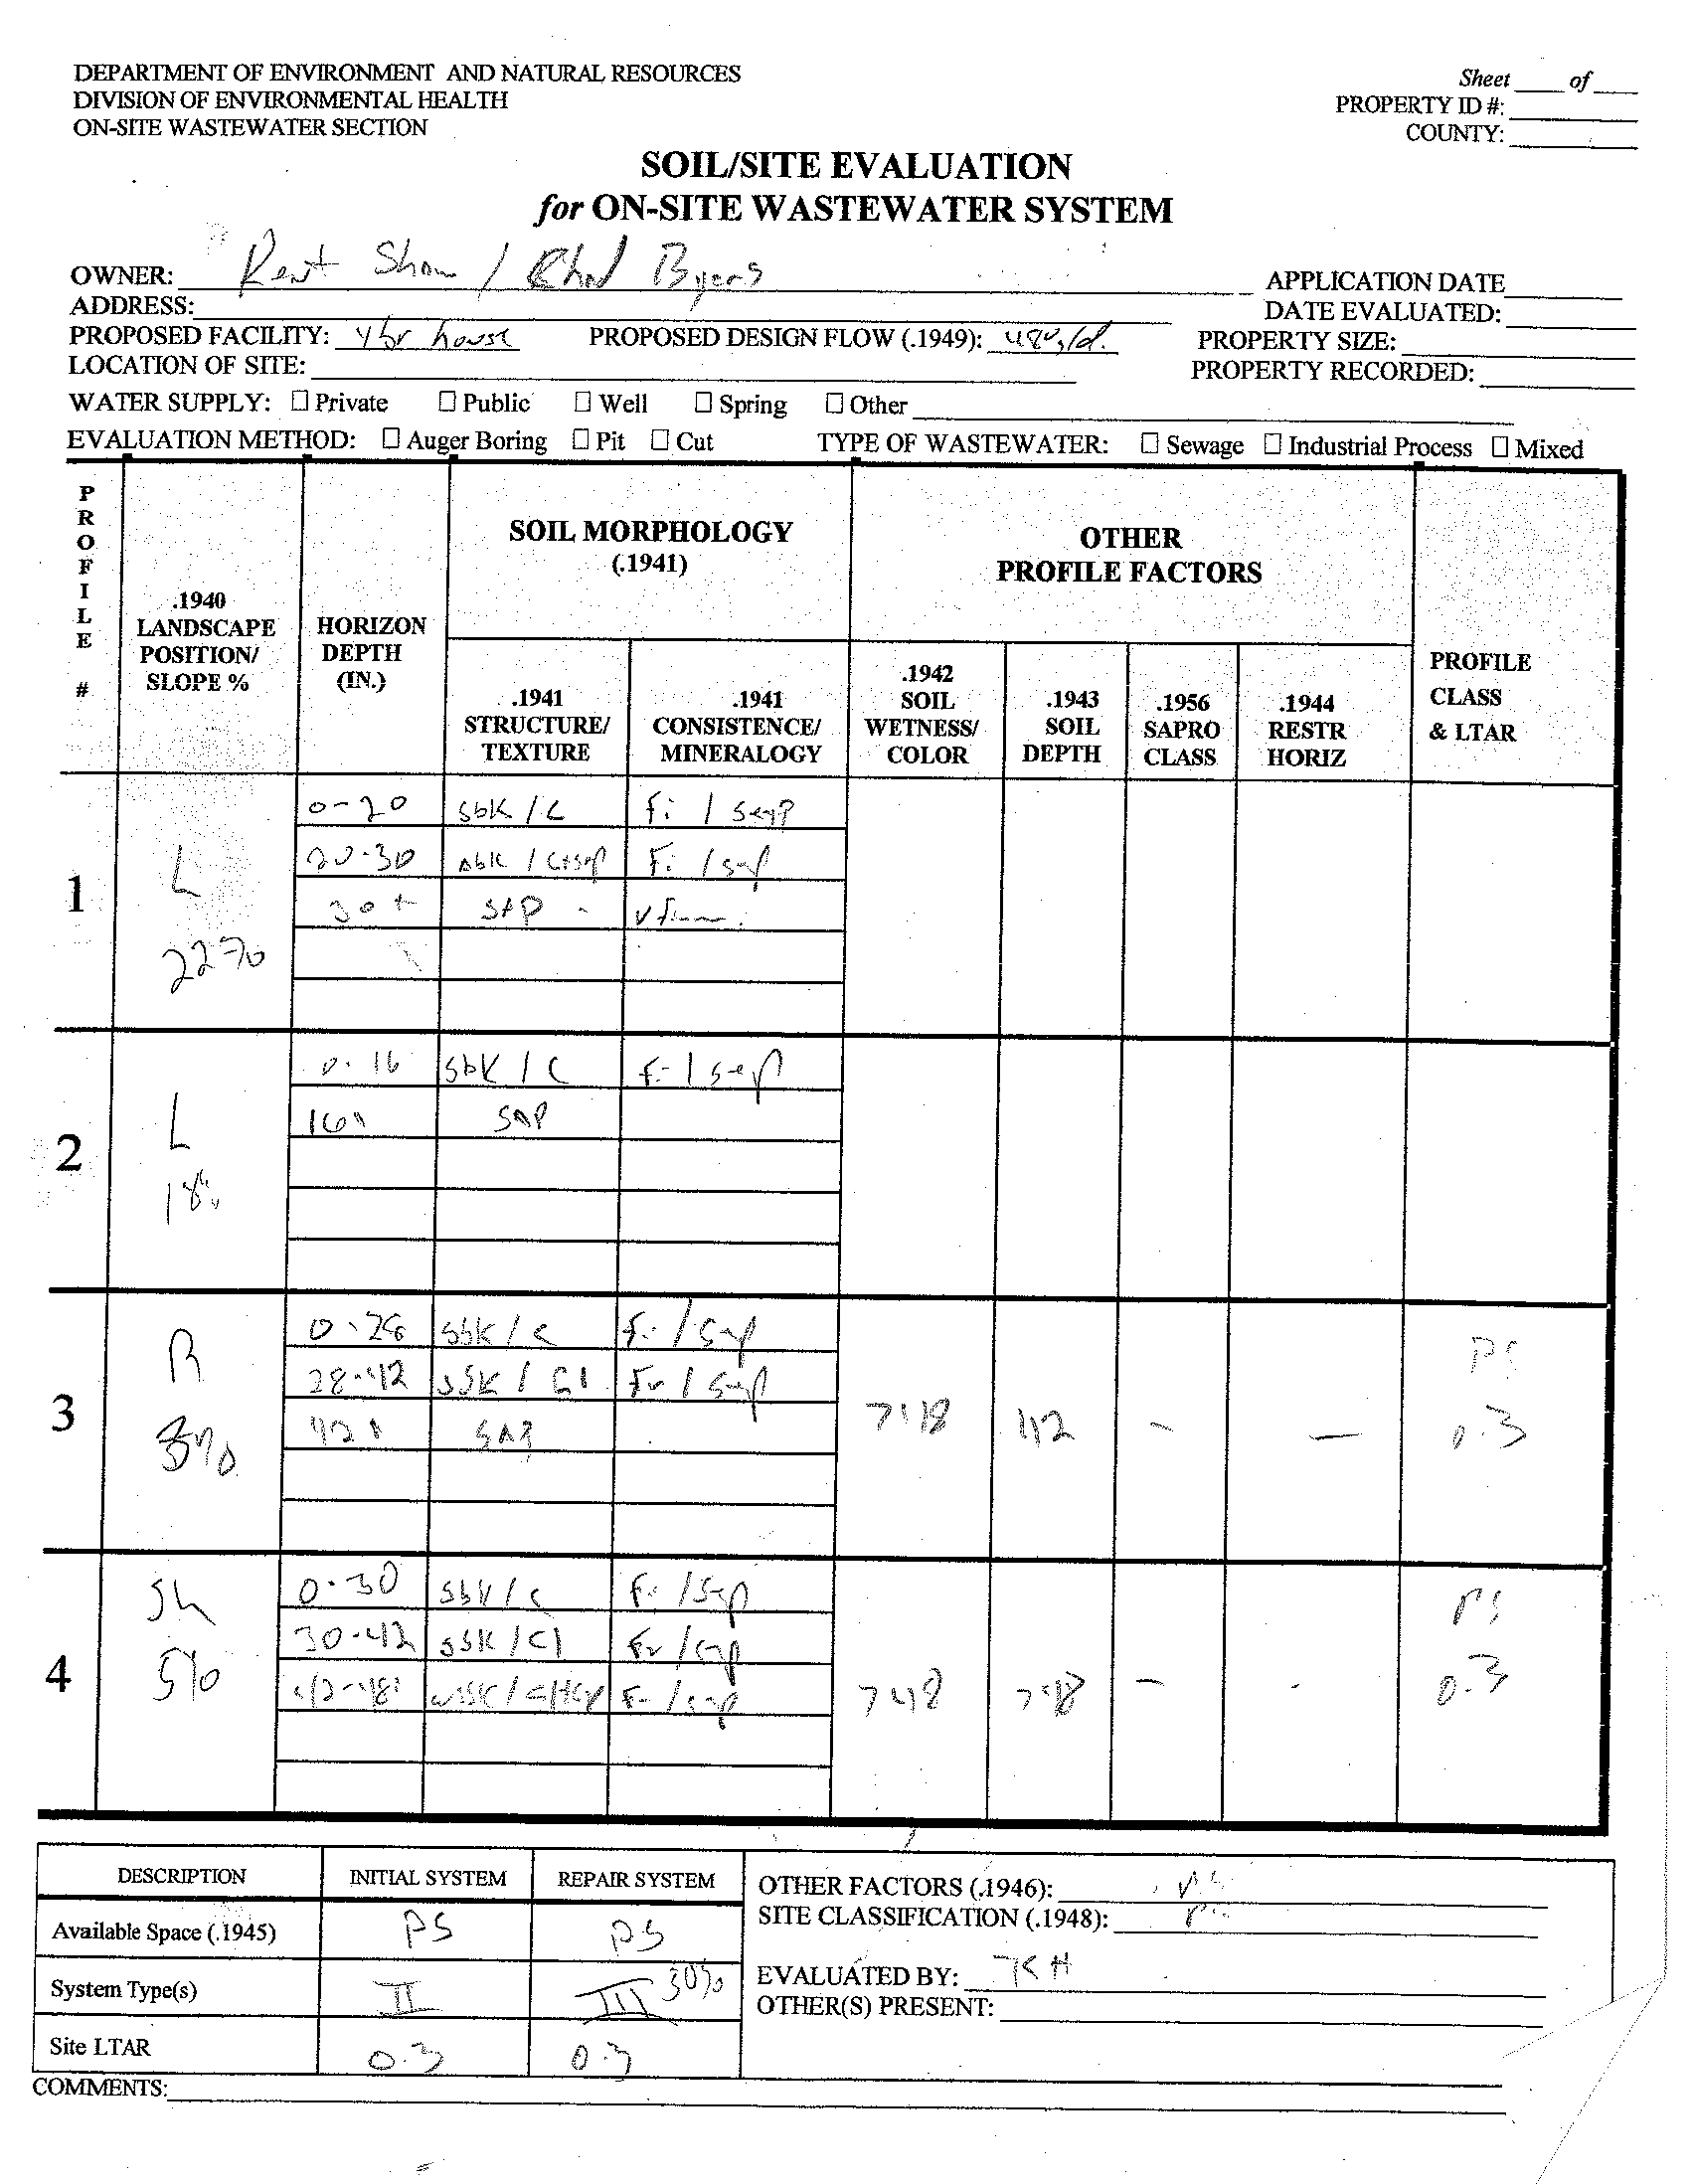 DEPARTMENT OF ENVIRONMENT AND NATURAL RESOURCES
DIVISION OF ENVIRONMENTAL HEALTH
ON-SITE WASTEWATER SECTION
Sheet ____ of ____
PROPERTY ID #:
COUNTY:
SOIL/SITE EVALUATION
for ON-SITE WASTEWATER SYSTEM
OWNER: Kent Shaw / Chad Byers
APPLICATION DATE
ADDRESS:
DATE EVALUATED:
PROPOSED FACILITY: 4 br house PROPOSED DESIGN FLOW (.1949): 480 g/d. PROPERTY SIZE:
LOCATION OF SITE:
PROPERTY RECORDED:
WATER SUPPLY: ☐ Private ☐ Public ☐ Well ☐ Spring ☐ Other
EVALUATION METHOD: ☐ Auger Boring ☐ Pit ☐ Cut TYPE OF WASTEWATER: ☐ Sewage ☐ Industrial Process ☐ Mixed
PROFILE #
.1940 LANDSCAPE POSITION/ SLOPE %
HORIZON DEPTH (IN.)
SOIL MORPHOLOGY (.1941)
.1941 STRUCTURE/ TEXTURE
.1941 CONSISTENCE/ MINERALOGY
OTHER PROFILE FACTORS
.1942 SOIL WETNESS/ COLOR
.1943 SOIL DEPTH
.1956 SAPRO CLASS
.1944 RESTR HORIZ
PROFILE CLASS & LTAR
1 L 22%
0-20 sbk / C Fi / sexp
20-30 sbk / C+sap Fi / sexp
30+ SAP - V firm
2 L 18%
0-16 sbk / C Fi / sexp
16+ SAP
3 R 3%
0-28 sbk / C Fi / sexp
28-42 sbk / Cl Fr / sexp
42+ SAP
>48 42 - - PS 0.3
4 Sh 5%
0-30 sbk / C Fi / sexp
30-42 sbk / Cl Fr / sexp
42-48 Fr / sexp
>48 >48 - - PS 0.3
DESCRIPTION INITIAL SYSTEM REPAIR SYSTEM
Available Space (.1945) PS PS
System Type(s) II III 30%
Site LTAR 0.3 0.3
OTHER FACTORS (.1946): PS
SITE CLASSIFICATION (.1948): PS
EVALUATED BY: KH
OTHER(S) PRESENT:
COMMENTS: